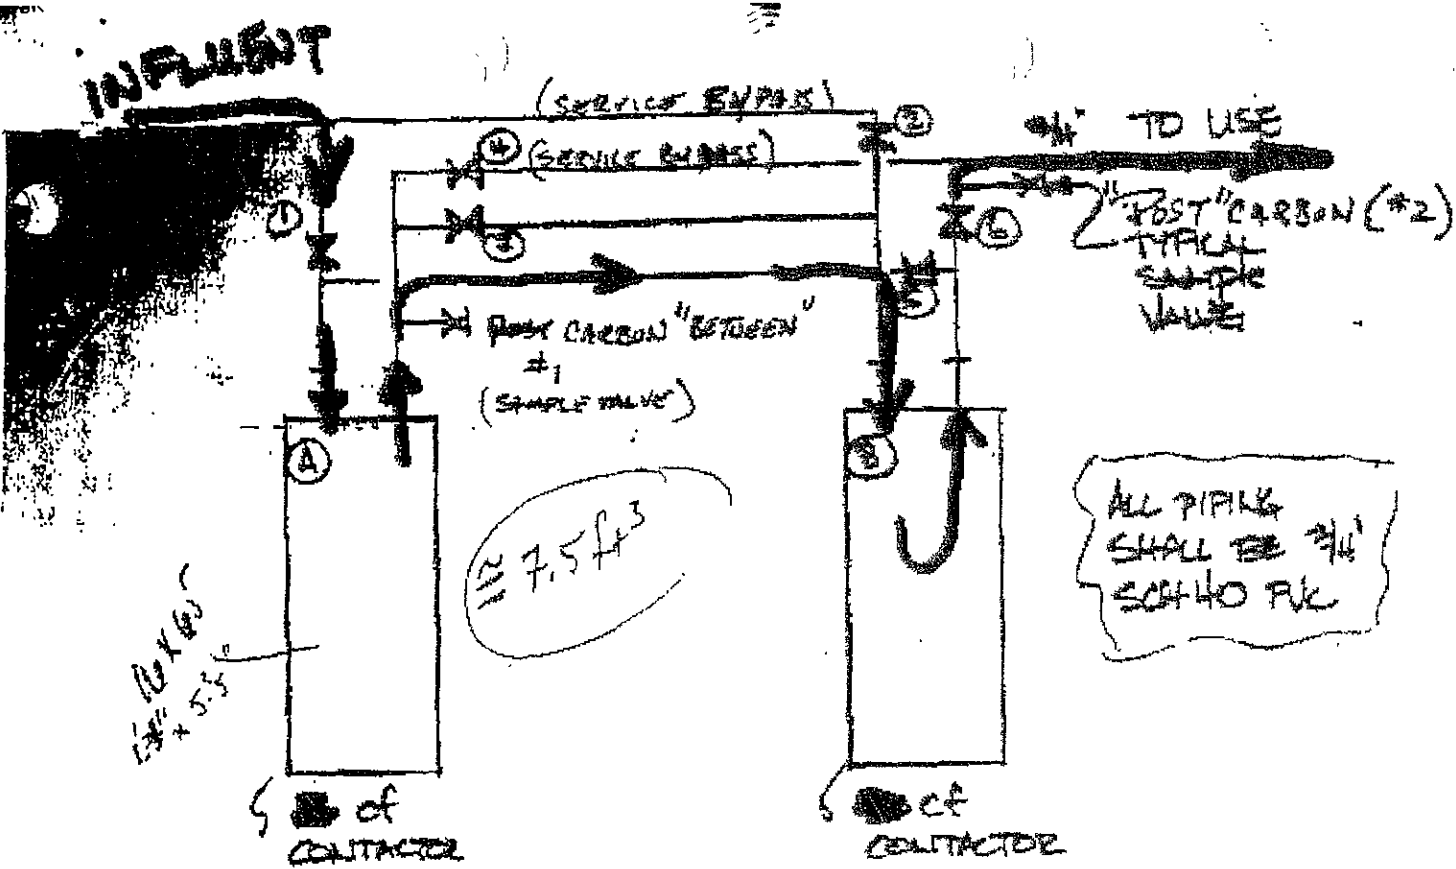 INFLUENT
(SERVICE BYPASS)
②
3/4" TO USE
④
(SERVICE BYPASS)
①
"POST" CARBON (#2)
TYPICAL
SAMPLE
VALVE
⑥
⑤
POST CARBON "BETWEEN"
#1
(SAMPLE VALVE)
A
B
≅ 7.5 ft³
ALL PIPING
SHALL BE 3/4"
SCH 40 PVC
cf
CONTACTOR
cf
CONTACTOR